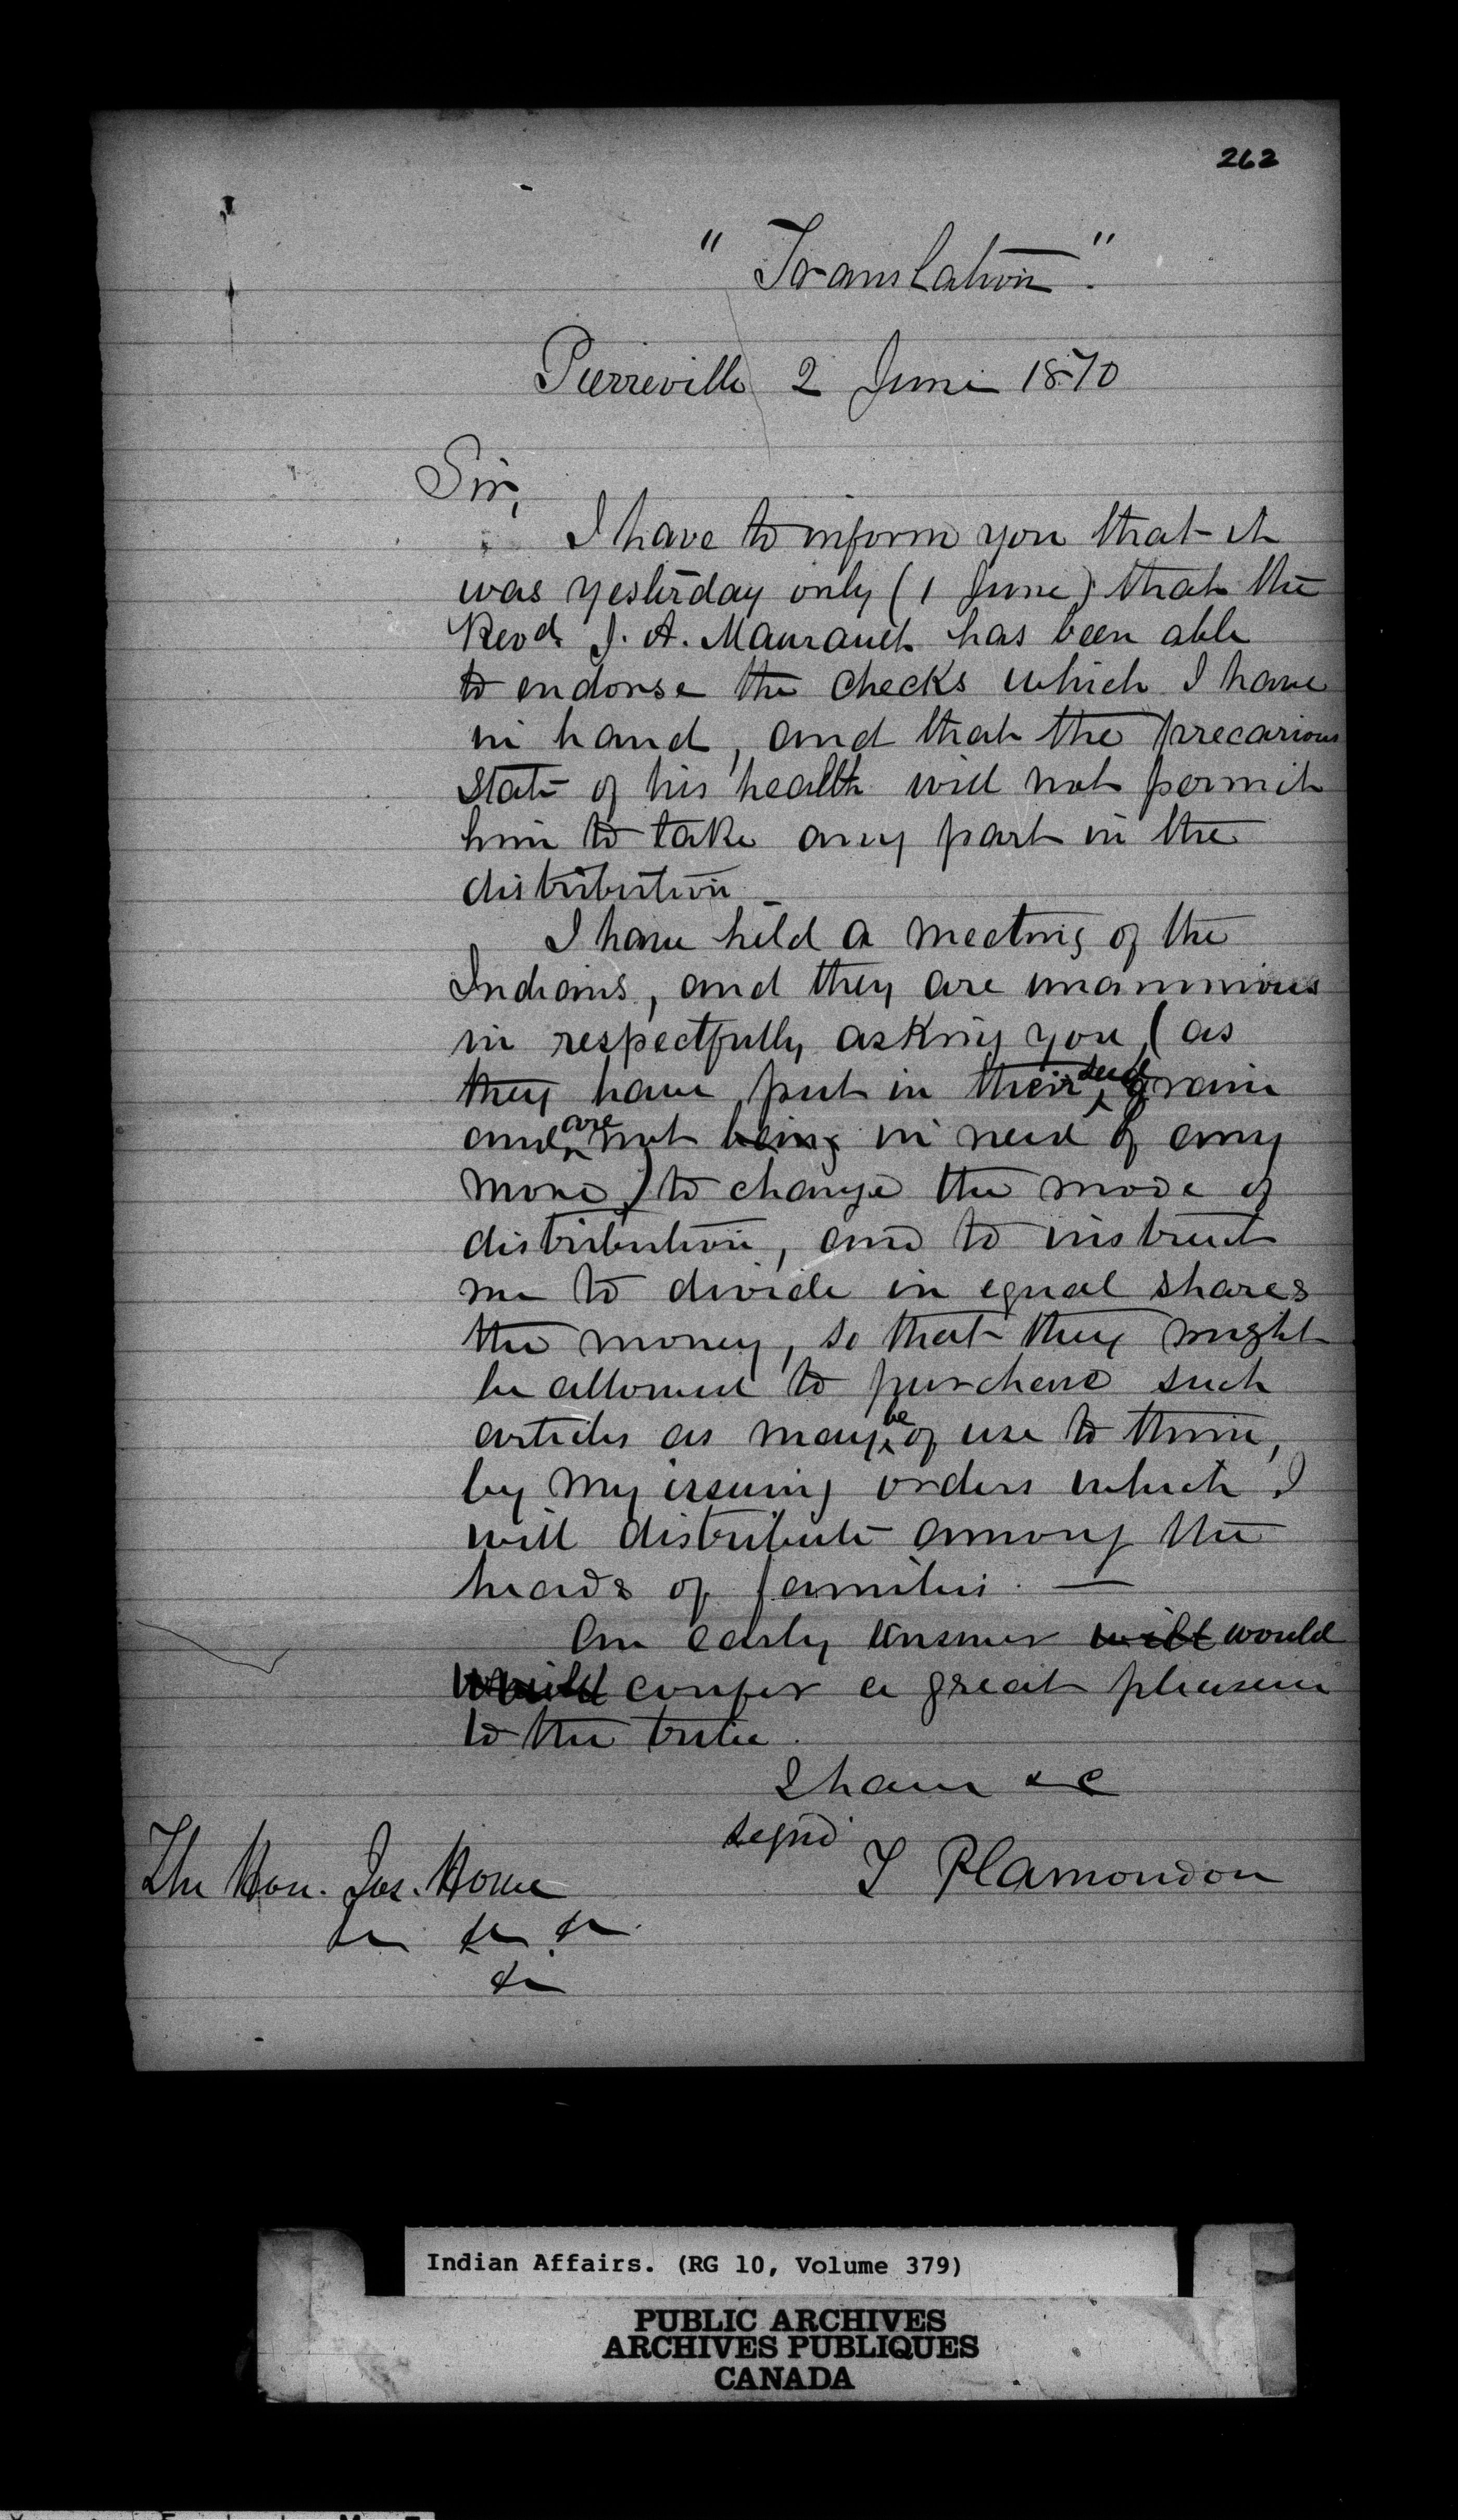 262
"Translation".
Pierreville 2 June 1870
Sir,
I have to inform you that it
was yesterday only (1 June) that the
Revd. J. A. Maurault has been able
to endorse the checks which I have
in hand, and that the precarious
state of his health will not permit
him to take any part in the
distribution.
I have held a meeting of the
Indians, and they are unanimous
in respectfully asking you, (as
they have put in their seed grain
and are not being in need of any
more) to change the mode of
distribution, and to instruct
me to divide in equal shares
the money, so that they might
be allowed to purchase such
articles as may be of use to them,
by my issuing orders which I
will distribute among the
heads of families. —
An early answer will would
would confer a great pleasure
to the tribe.
I have &c
signd
L Plamondon
The Hon. Jos. Howe
&c &c &c
&c
Indian Affairs. (RG 10, Volume 379)
PUBLIC ARCHIVES
ARCHIVES PUBLIQUES
CANADA